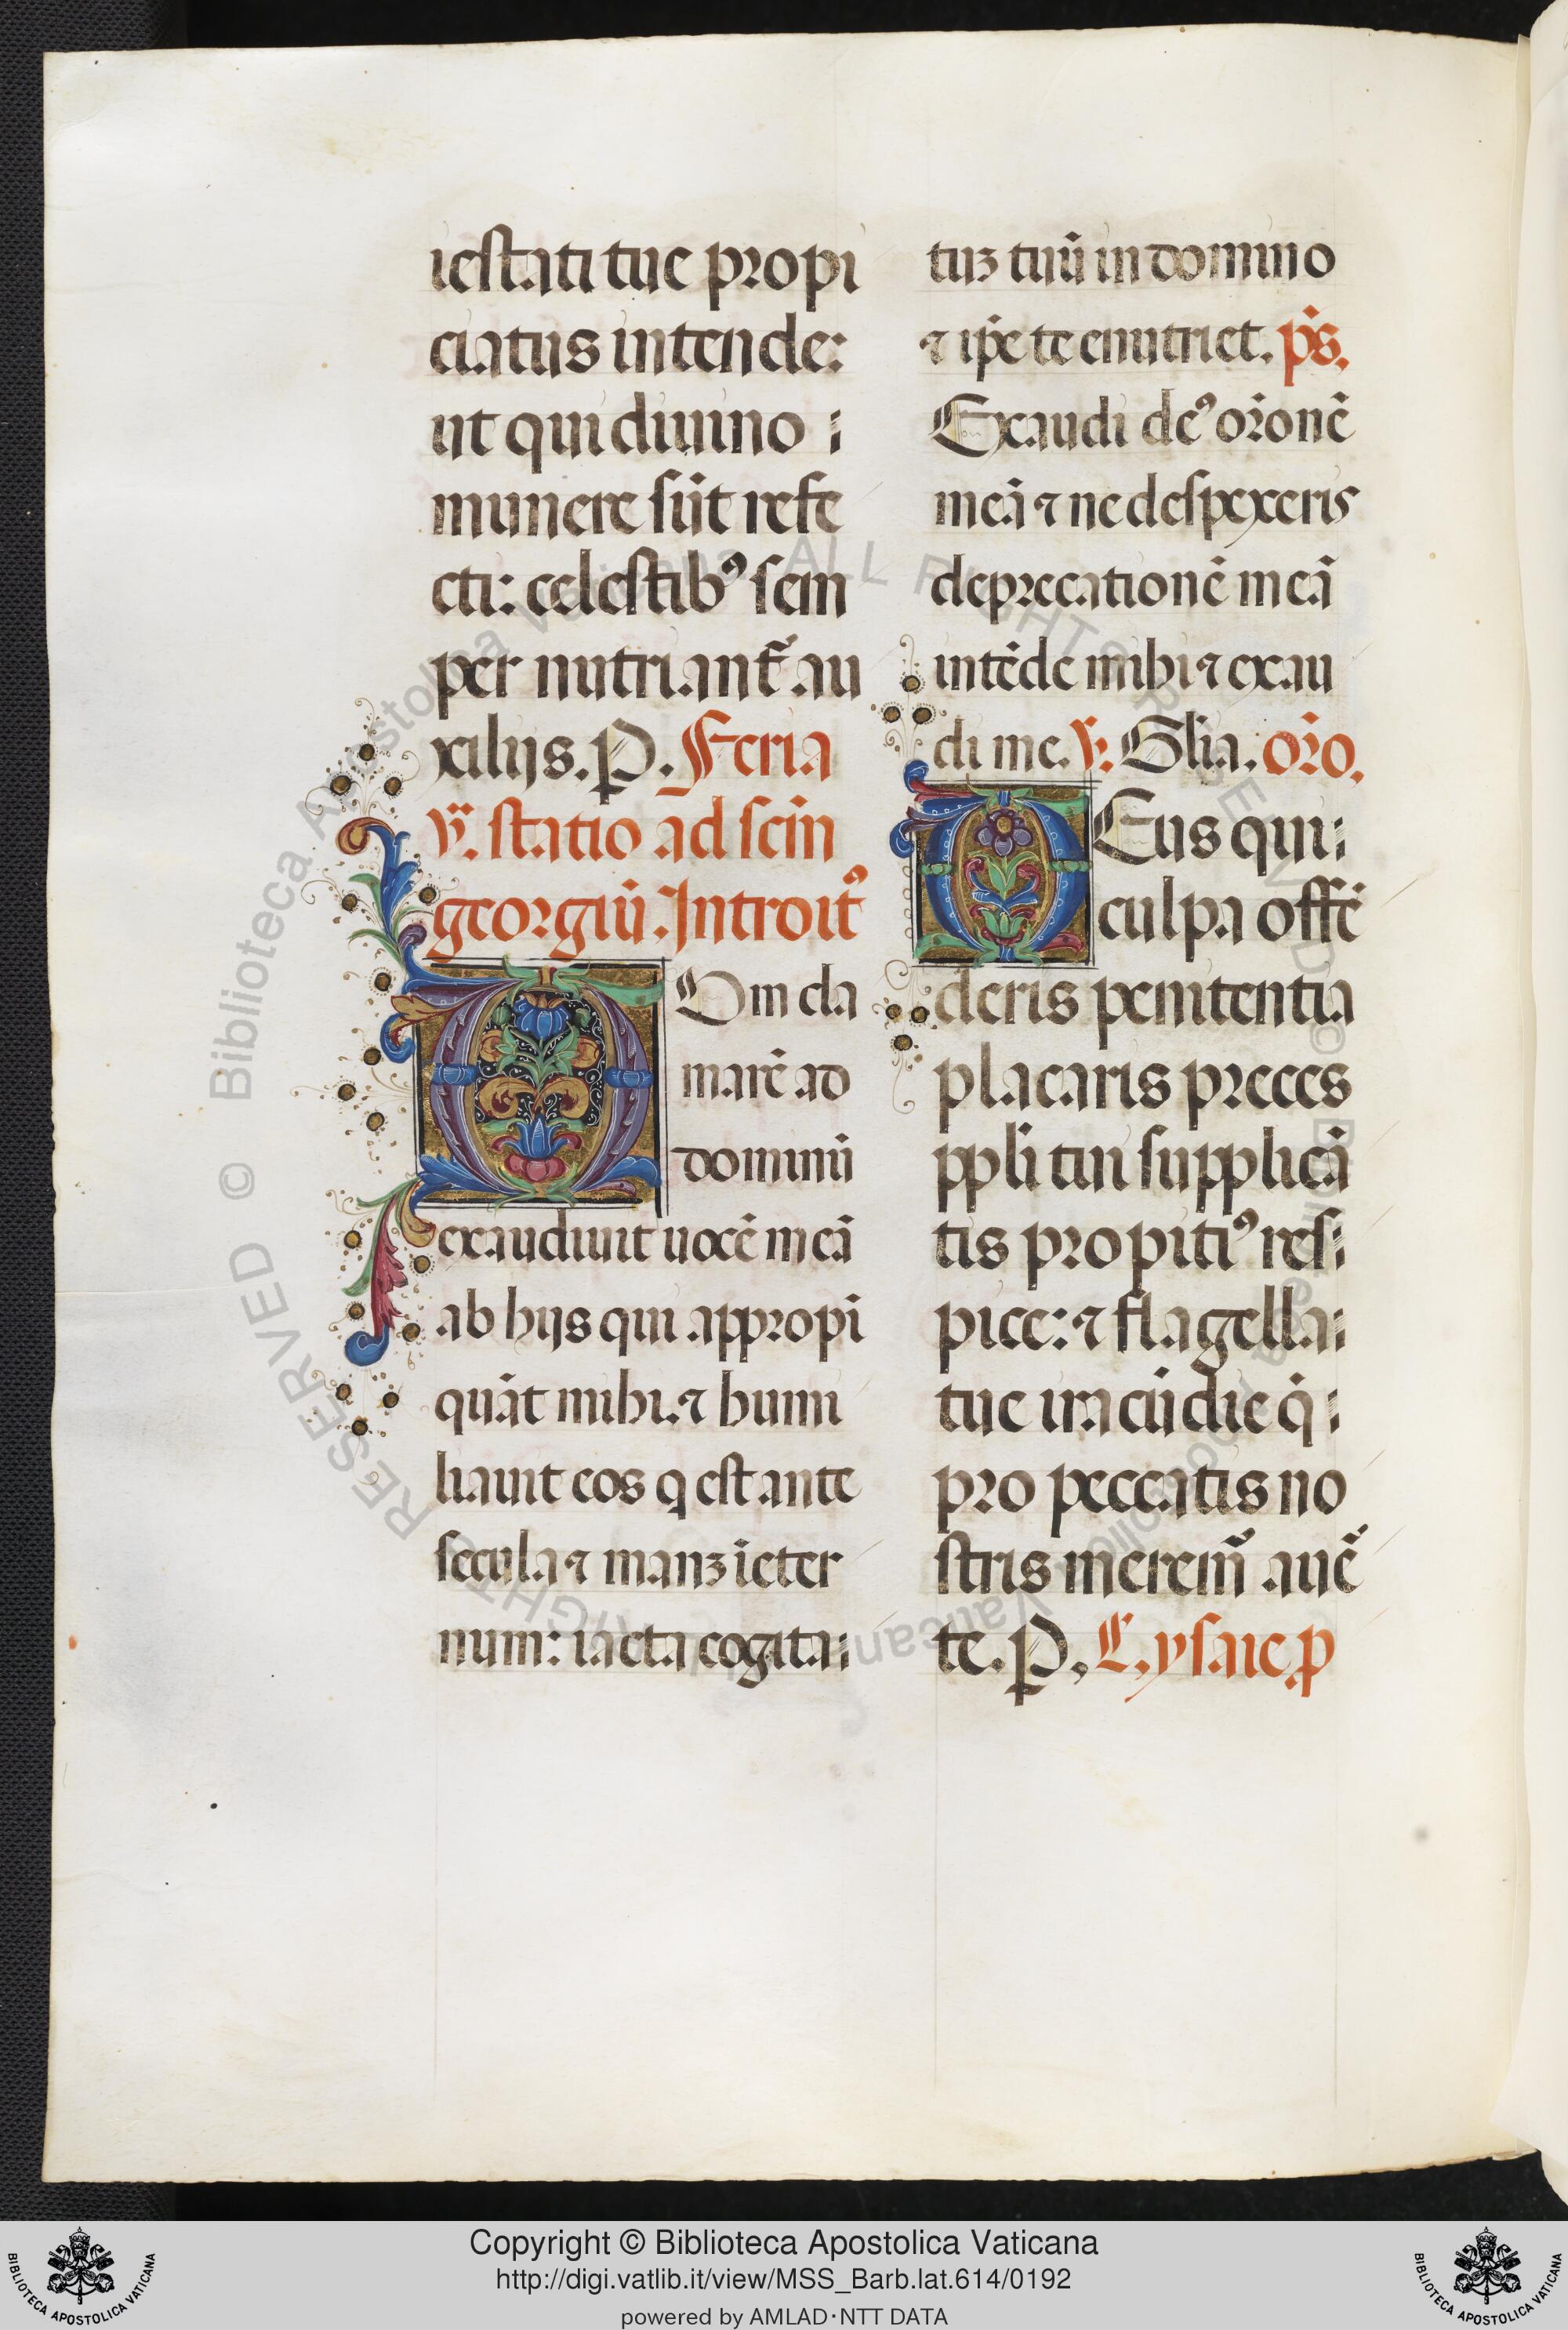 iestati tue propi
ciatus intende:
ut qui diuino
munere sūt refe
cti: celestib⁹ sem
per nutriant᷑ au
xilijs. P. Feria
v. statio ad scm̄
georgiū. Introit⁹
Om cla
marē ad
dominū
exaudiuit uocē meā
ab hijs qui appropi
quāt mihi. ⁊ humi
liauit eos q est ante
secula ⁊ manꝫ ī eter
num: iacta cogita
tuꝫ tuū in domino
⁊ ip̄e te enutriet. p̄s.
Exaudi de⁹ or̄onē
meā ⁊ ne despexeris
deprecationē meā
intēde mihi ⁊ exau
di me. ℣. Glīa. or̄o.
Eus qui
culpa offē
deris penitentia
placaris preces
ppl̄i tui supplicā
tis propiti⁹ res
pice: ⁊ flagella
tue iracūdie q̄
pro peccatis no
stris merem᷑ auē
te. P. L. ysaie. p
Copyright © Biblioteca Apostolica Vaticana
http://digi.vatlib.it/view/MSS_Barb.lat.614/0192
powered by AMLAD·NTT DATA
BIBLIOTECA APOSTOLICA VATICANA
BIBLIOTECA APOSTOLICA VATICANA